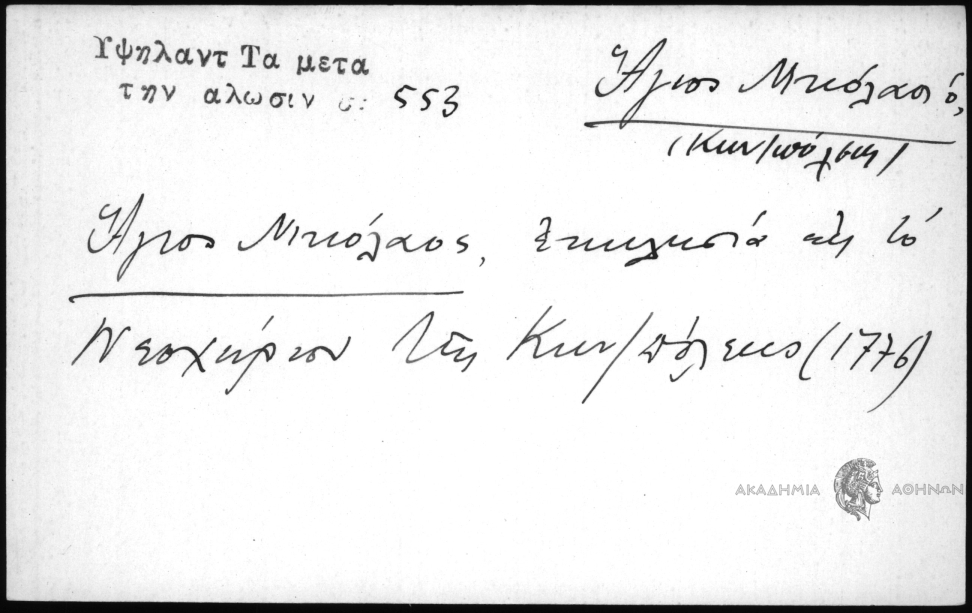 Υψηλαντ Τα μετα
την αλωσιν σ: 553
Ἅγιος Νικόλαος ὁ,
(Κων/πόλεως)
Ἅγιος Νικόλαος, Ἐκκλησία εἰς τὸ
Νεοχώριον τῆς Κων/πόλεως (1776)
ΑΚΑΔΗΜΙΑ ΑΘΗΝΩΝ